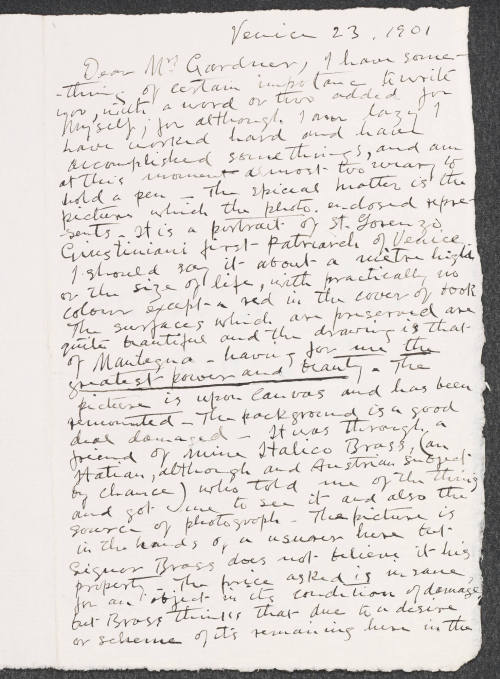 Venice 23. 1901
Dear Mrs Gardner, I have some-
-thing of certain importance to write
you, with a word or two added for
myself; for although I am lazy I
have worked hard and have
accomplished somethings, and am
at this moment almost too weary to
hold a pen - The special matter is the
picture which the photo. enclosed repre-
-sents. It is a portrait of St. Lorenzo
Giustiniani first Patriarch of Venice,
I should say it about a metre high
or the size of life, with practically no
colour except a red in the cover of book
The surfaces which are preserved are
quite beautiful and the drawing is that
of Mantegna - having for me the
greatest power and beauty. The
picture is upon canvas and has been
remounted - The background is a good
deal damaged - It was through a
friend of mine Italico Brass, (an
Italian, although and Austrian subject
by chance) who told me of the thing
and got me to see it and also the
source of photograph - The picture is
in the hands of a usurer here but
Signor Brass does not believe it his
property - The price asked is insane,
for an object in its condition of damage,
but Brass thinks that due to a desire
or scheme of its remaining here in the